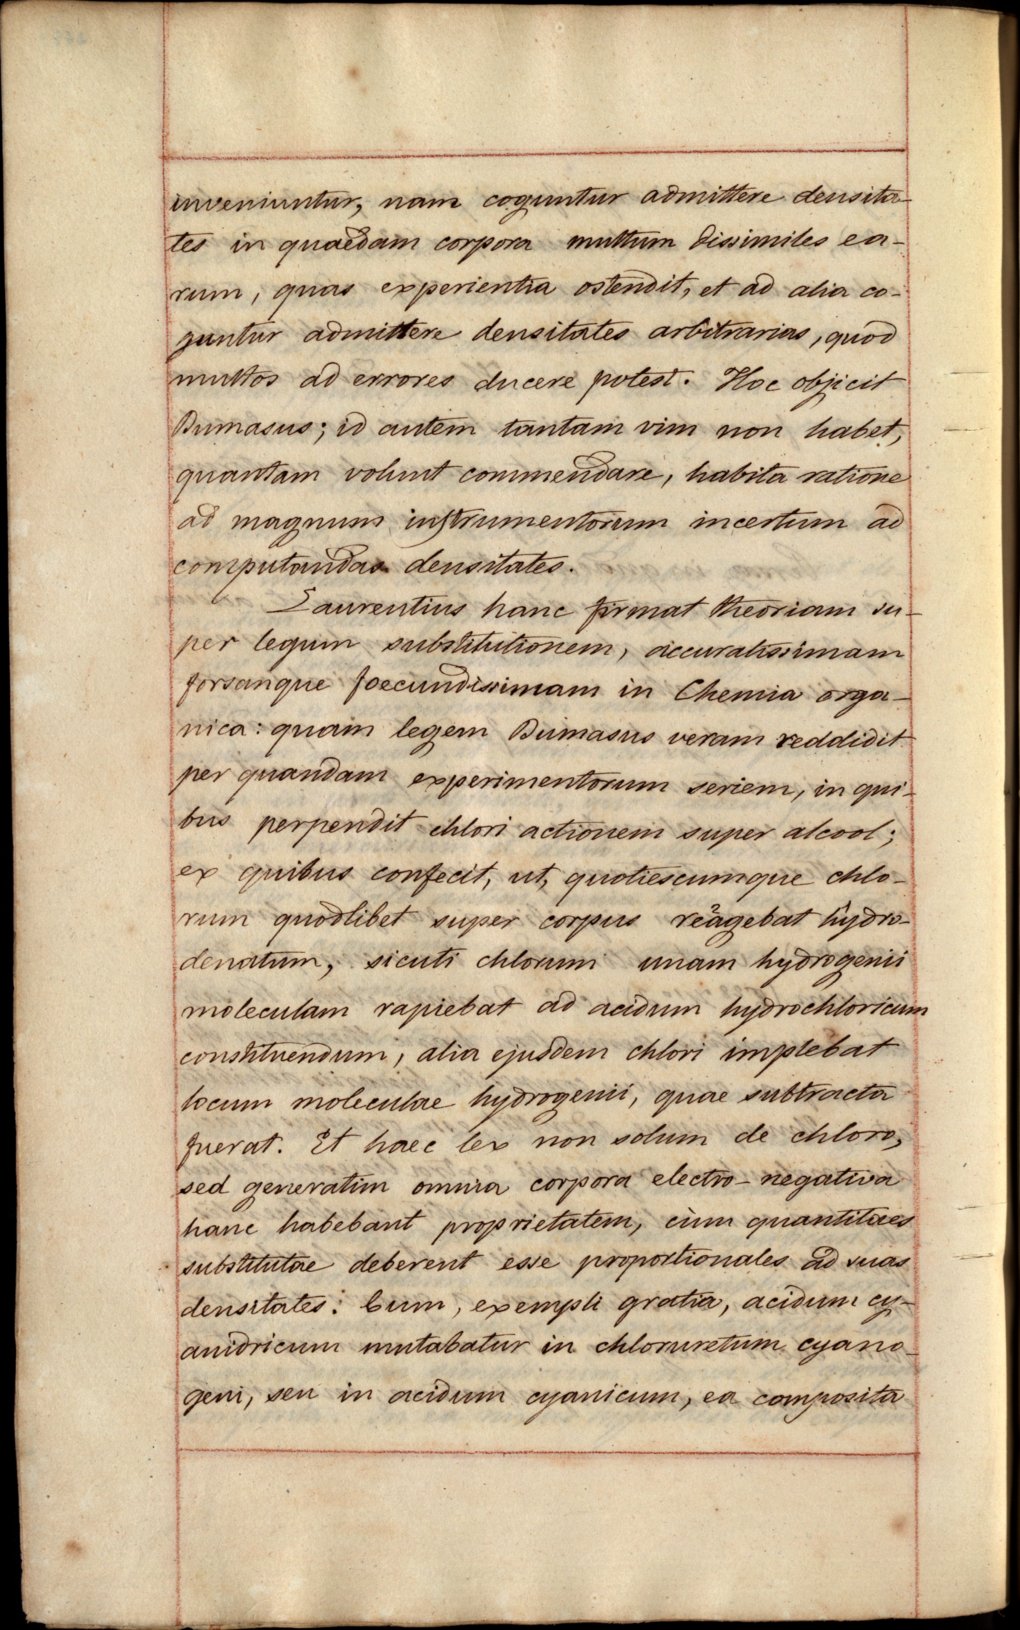 inveniuntur, nam coguntur admittere densita-
tes in quaedam corpora multum dissimiles ea-
rum, quas experientia ostendit, et ad alia co-
guntur admittere densitates arbitrarias, quod
multos ad errores ducere potest. Hoc objicit
Dumasus; id autem tantam vim non habet,
quantam volunt commendare, habita ratione
ad magnum instrumentorum incertum ad
computandas densitates.
Laurentius hanc firmat theoriam su-
per legum substitutionem, accuratissimam
forsanque foecundissimam in Chemia orga-
nica: quam legem Dumasus veram reddidit
per quandam experimentorum seriem, in qui-
bus perpendit chlori actionem super alcool;
ex quibus confecit, ut, quotiescumque chlo-
rum quodlibet super corpus reagebat hydro-
denatum, sicuti chlorum unam hydrogenii
moleculam rapiebat ad acidum hydrochloricum
constituendum, alia ejusdem chlori implebat
locum moleculae hydrogenii, quae subtracta
fuerat. Et haec lex non solum de chloro,
sed generatim omnia corpora electro-negativa
hanc habebant proprietatem, cùm quantitaes
substitutae deberent esse proportionales ad suas
densitates: Cum, exempli gratia, acidum cy-
anidricum mutabatur in chloruretum cyano-
geni, seu in acidum cyanicum, ea composita